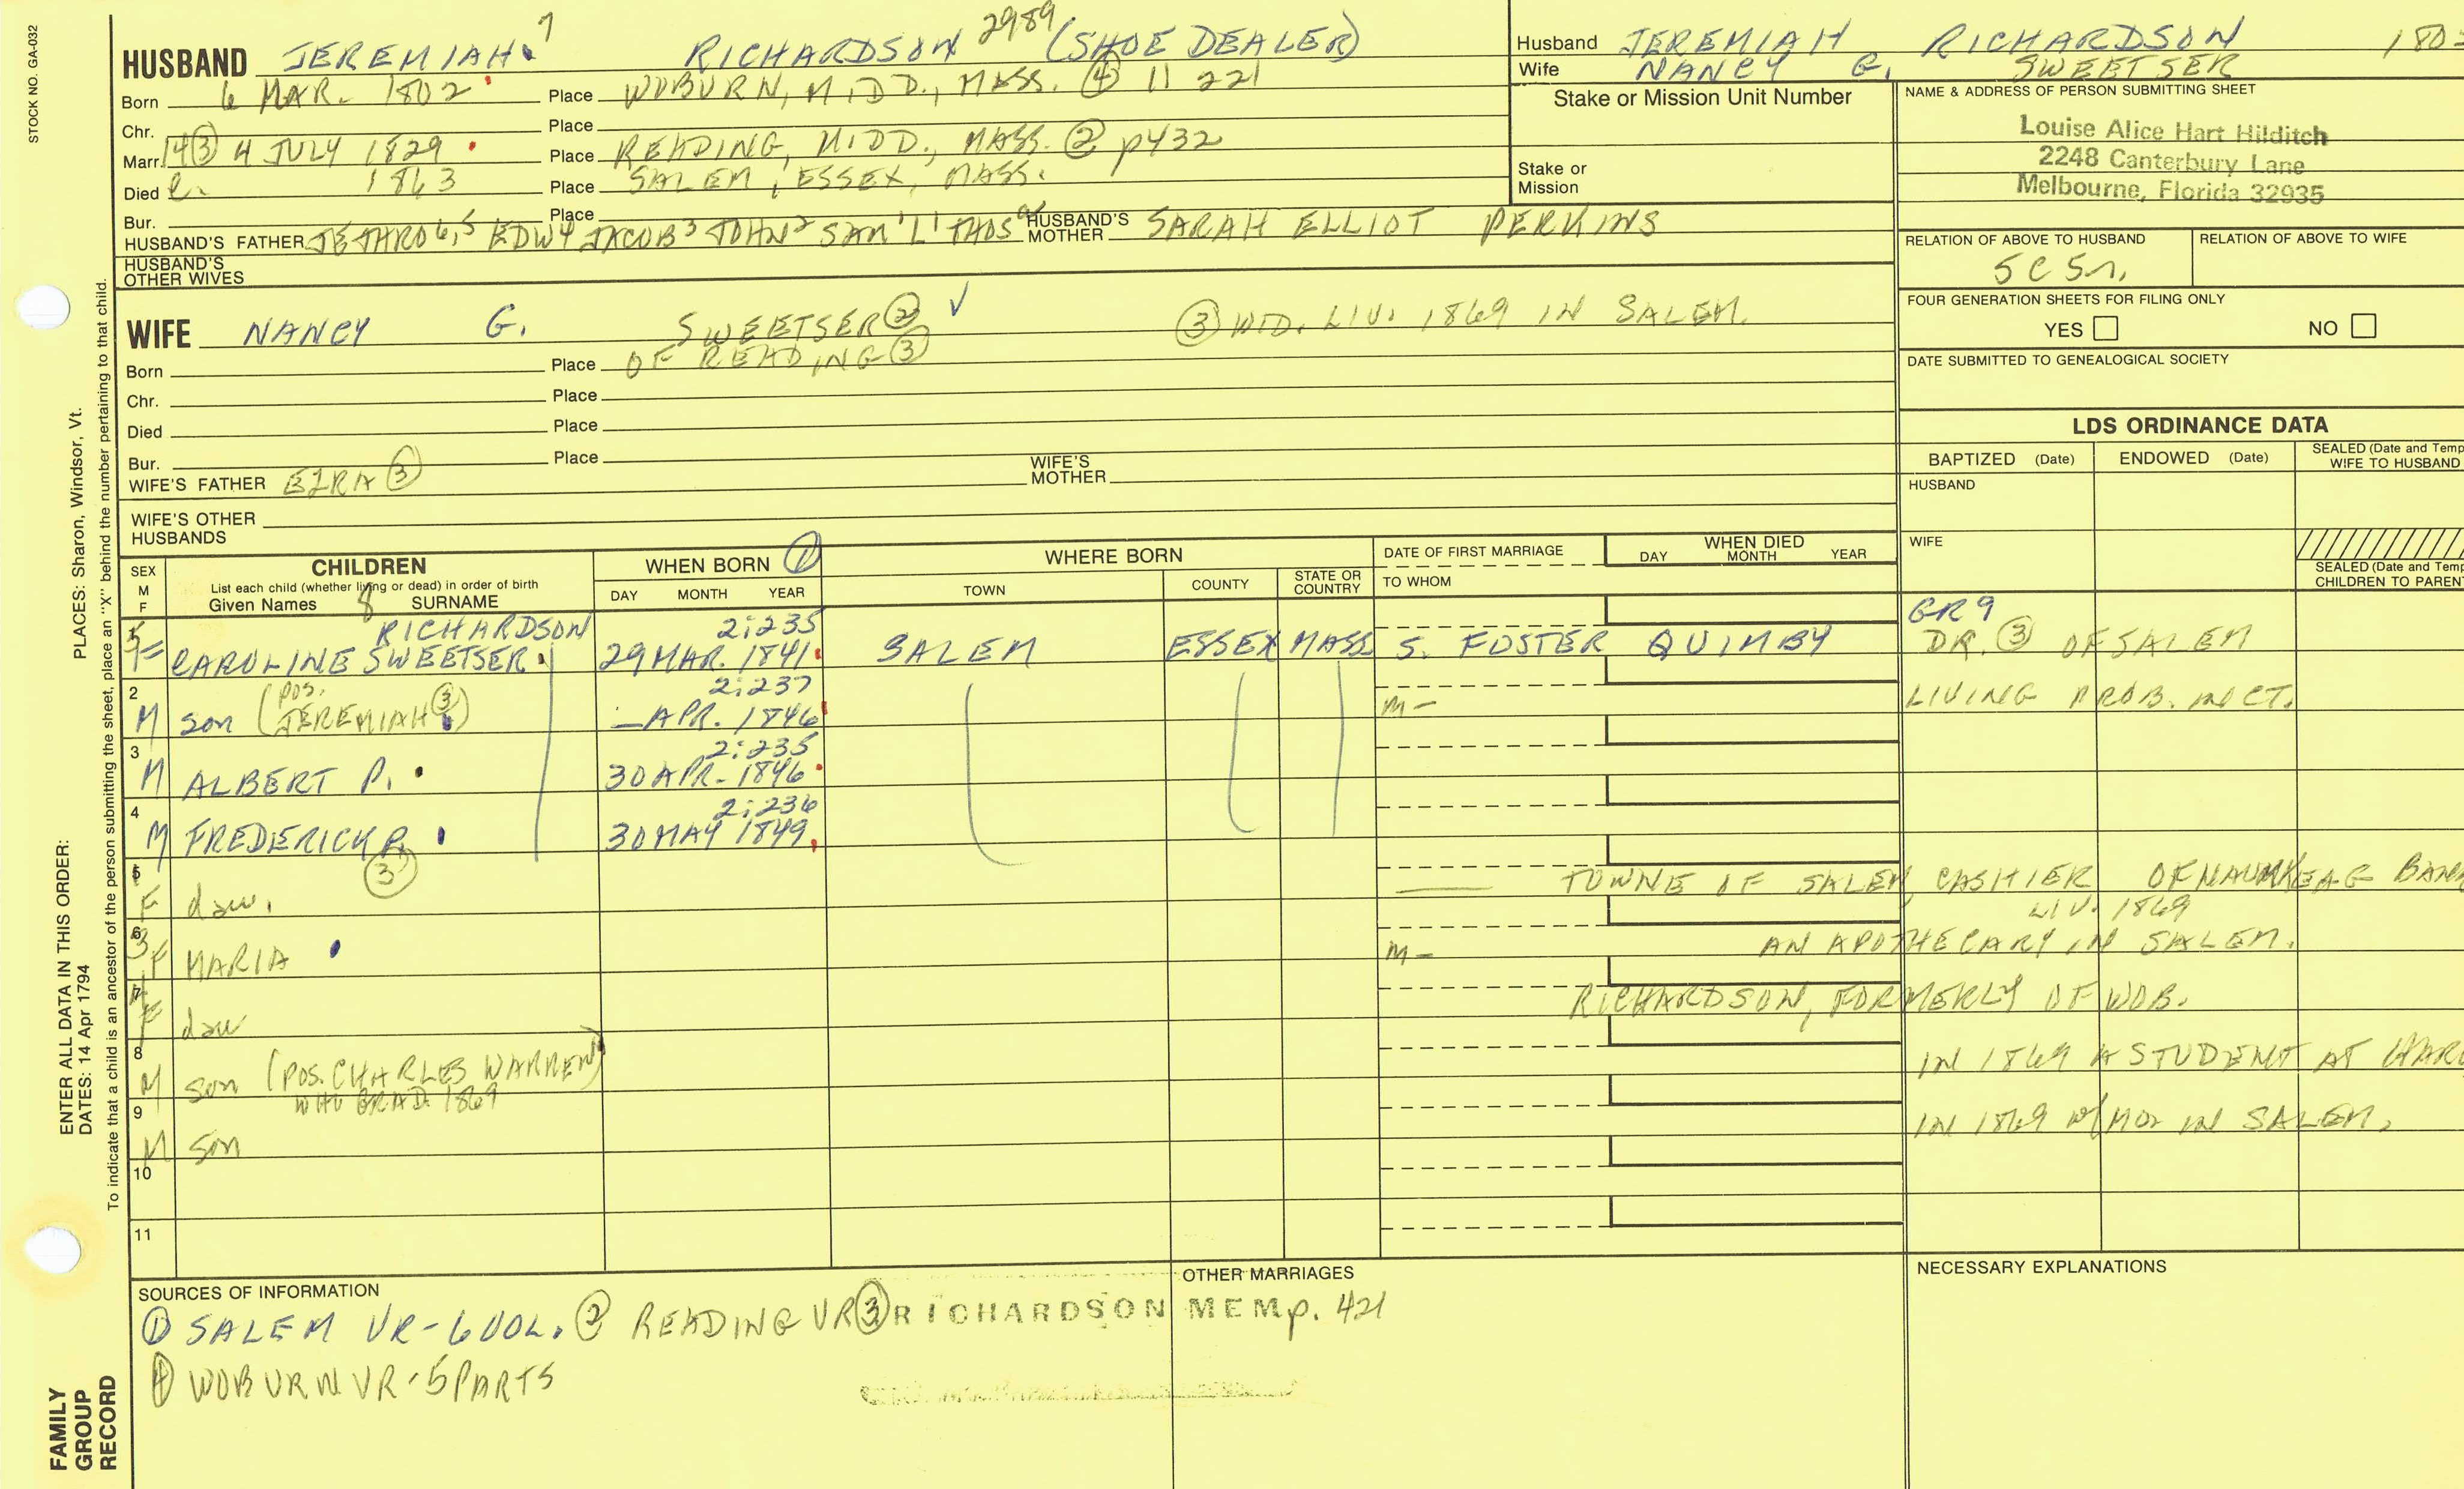 STOCK NO. GA-032
PLACES: Sharon, Windsor, Vt.
ENTER ALL DATA IN THIS ORDER:
DATES: 14 Apr 1794
To indicate that a child is an ancestor of the person submitting the sheet, place an "X" behind the number pertaining to that child.
FAMILY
GROUP
RECORD
HUSBAND JEREMIAH 7 RICHARDSON 2989 (SHOE DEALER)
Born 6 MAR. 1802 Place WOBURN, MIDD., MASS. ④ 11 221
Chr. Place
Marr. ③ 4 JULY 1829 Place READING, MIDD., MASS. ② p432
Died 1863 Place SALEM, ESSEX, MASS.
Bur. Place
HUSBAND'S FATHER JETHRO 6,5 EDW 4 JACOB 3 JOHN 2 SAM'L 1 THOS HUSBAND'S MOTHER SARAH ELLIOT PERKINS
HUSBAND'S
OTHER WIVES
WIFE NANCY G. SWEETSER ② ✓ ③ WID. LIV. 1869 IN SALEM.
Born Place OF READING ③
Chr. Place
Died Place
Bur. Place
WIFE'S FATHER EZRA ③ WIFE'S MOTHER
WIFE'S OTHER
HUSBANDS
Husband JEREMIAH RICHARDSON 180
Wife NANCY G. SWEETSER
Stake or Mission Unit Number
Stake or
Mission
NAME & ADDRESS OF PERSON SUBMITTING SHEET
Louise Alice Hart Hilditch
2248 Canterbury Lane
Melbourne, Florida 32935
RELATION OF ABOVE TO HUSBAND RELATION OF ABOVE TO WIFE
5 C 5r.
FOUR GENERATION SHEETS FOR FILING ONLY
YES NO
DATE SUBMITTED TO GENEALOGICAL SOCIETY
LDS ORDINANCE DATA
BAPTIZED (Date) ENDOWED (Date) SEALED (Date and Temp
WIFE TO HUSBAND
HUSBAND
WIFE
SEALED (Date and Temp
CHILDREN TO PARENT
SEX M F CHILDREN WHEN BORN ① WHERE BORN DATE OF FIRST MARRIAGE WHEN DIED
List each child (whether living or dead) in order of birth
Given Names 8 SURNAME DAY MONTH YEAR TOWN COUNTY STATE OR COUNTRY TO WHOM DAY MONTH YEAR
RICHARDSON 2:235 GR 9
5 F CAROLINE SWEETSER 29 MAR. 1841 SALEM ESSEX MASS S. FOSTER QUIMBY DR. ③ OF SALEM
2 M son (POS. JEREMIAH ③) 2:237 — APR. 1846 m— LIVING PROB. IN CT.
3 M ALBERT P. 2:235 30 APR. 1846
4 M FREDERICK P. 2:236 30 MAY 1849
5 F dau. ③ TOWNE OF SALEM, CASHIER OF NAUMKEAG BAN
LIV. 1869
6 3 F MARIA m— AN APOTHECARY IN SALEM.
7 F dau RICHARDSON, FORMERLY OF WOB.
8 M son (POS. CHARLES WARREN) IN 1869 A STUDENT AT HAR
WHO GRAD. 1869
9 M son IN 1869 w/MO2 IN SALEM.
10
11
SOURCES OF INFORMATION
① SALEM VR-6 VOL. ② READING VR ③ RICHARDSON MEM p. 421
④ WOBURN VR-5 PARTS
OTHER MARRIAGES
NECESSARY EXPLANATIONS